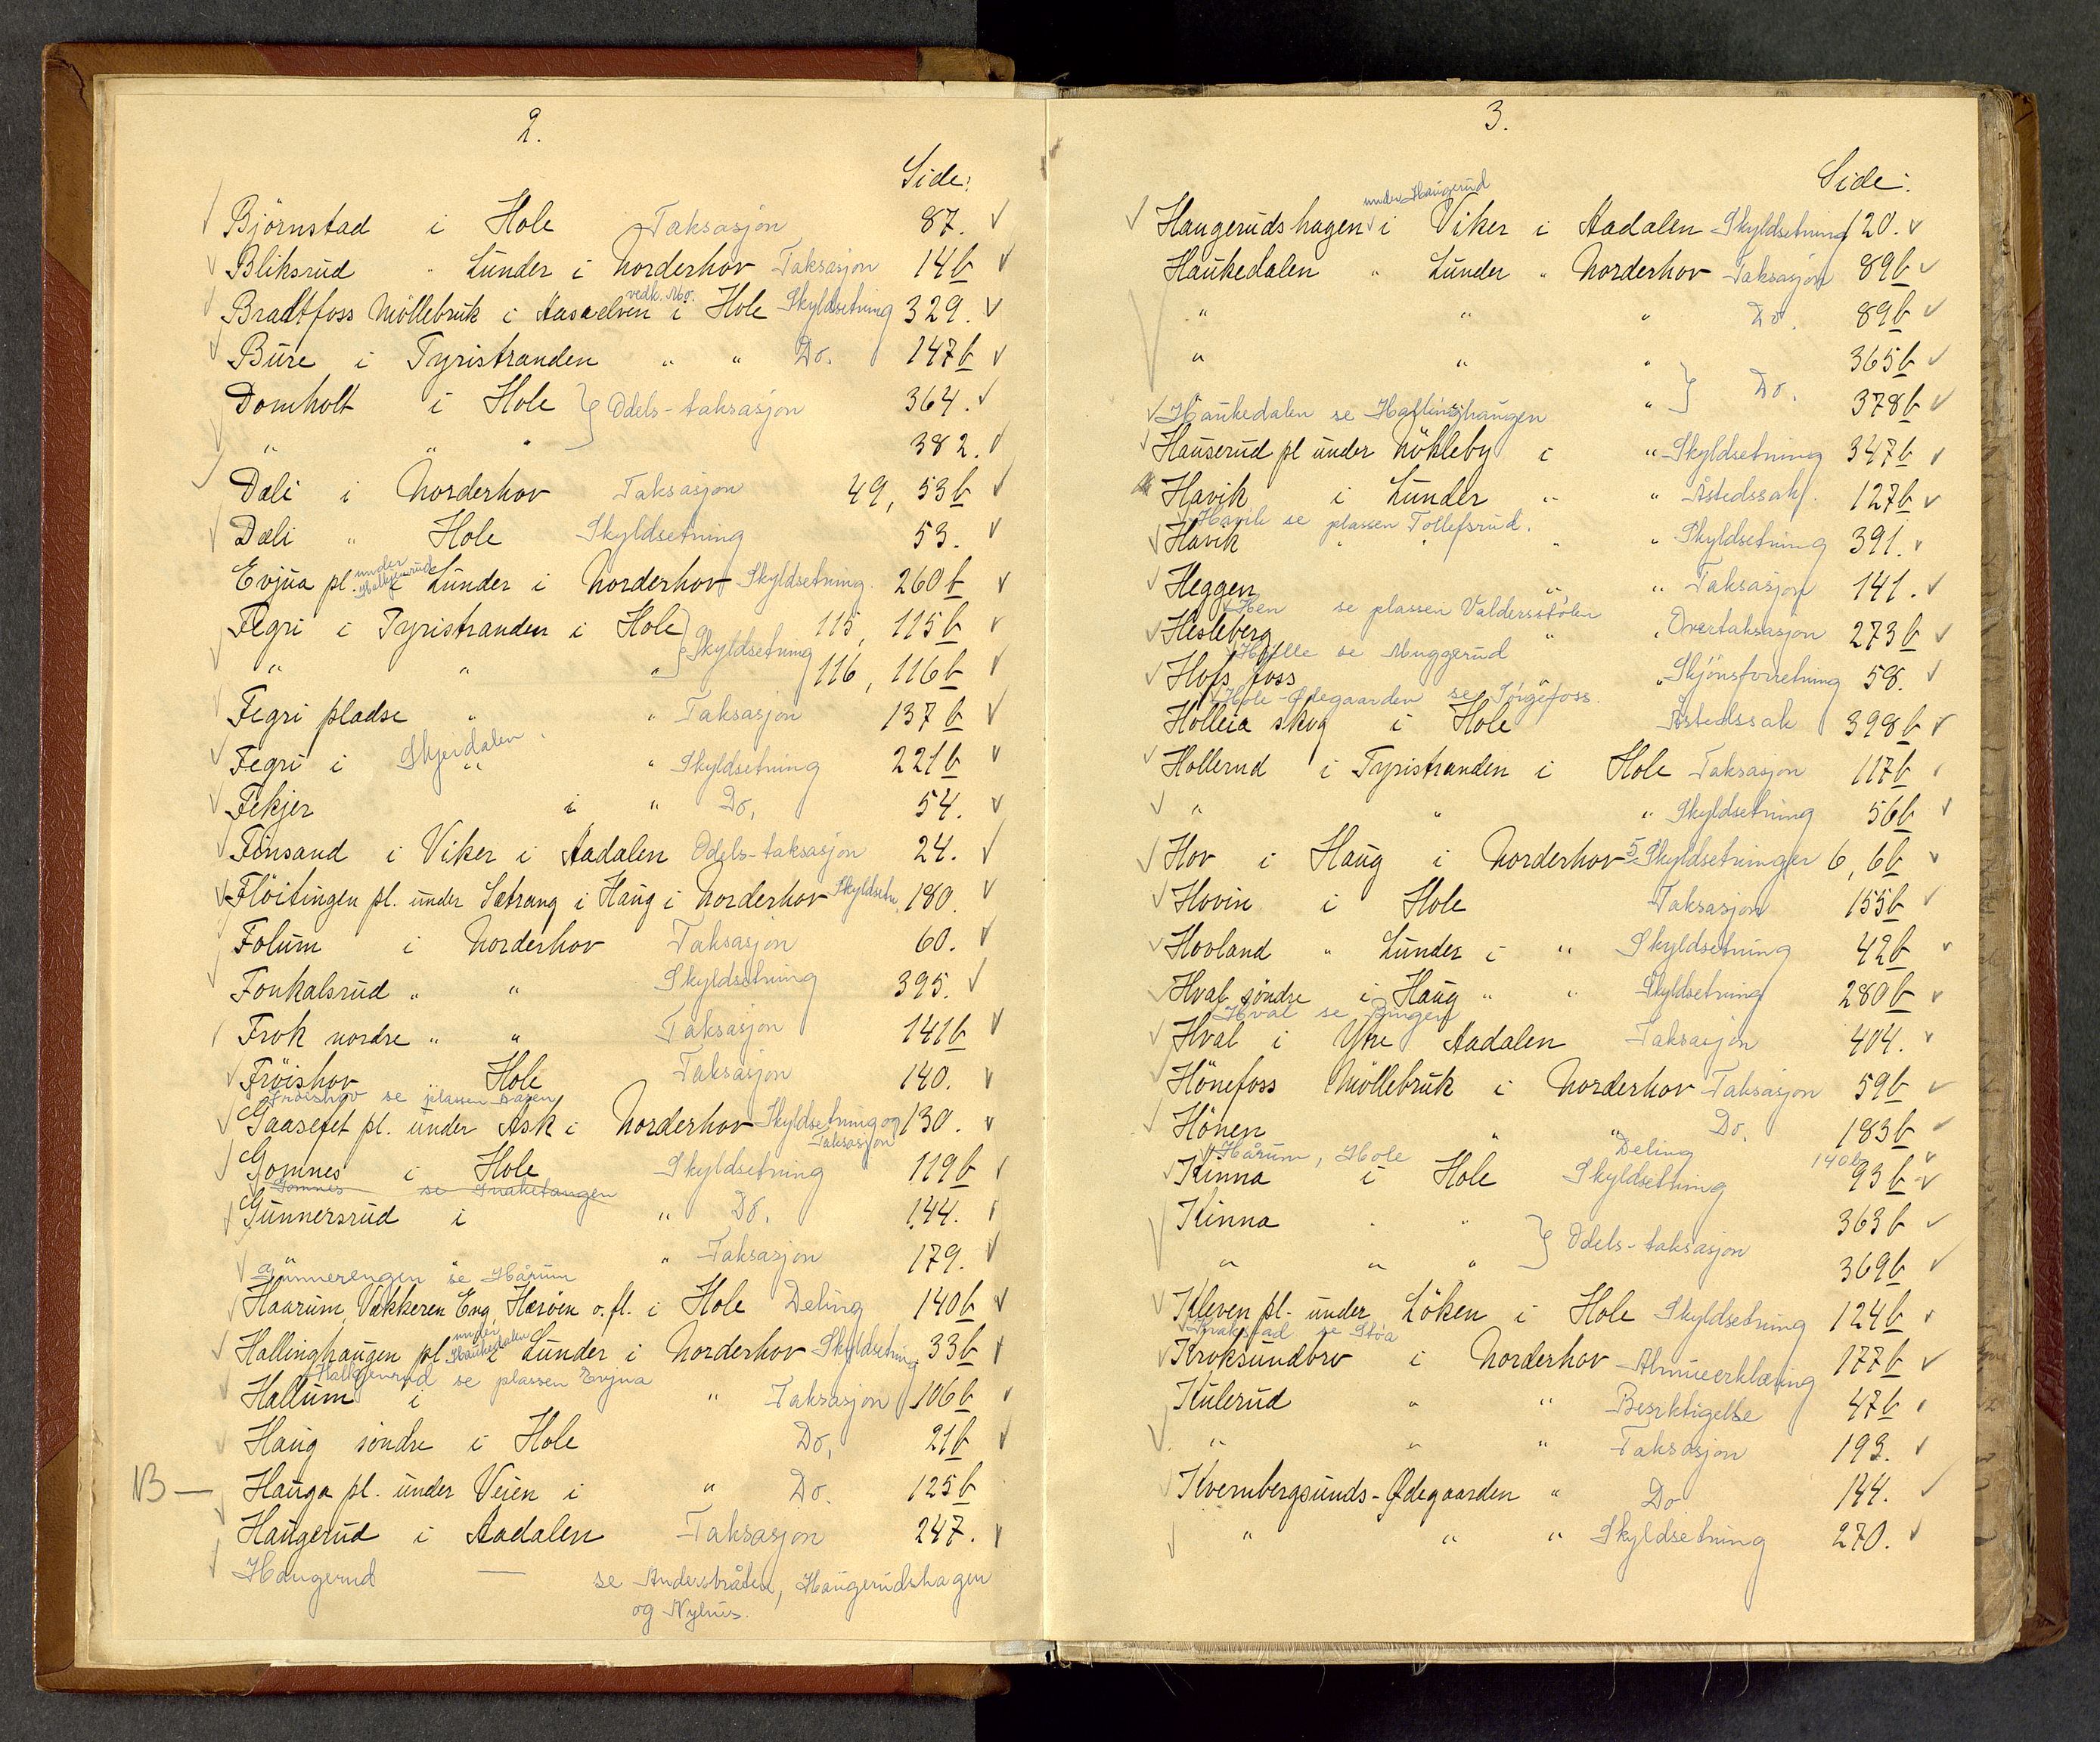 2.
Side:
Björnstad i Hole Taksasjon 87.
Bliksrud " Lunder i Norderhov Taksasjon 14b
Bradtfoss Möllebruk i Aasaelven vedk. Mo. i Hole Skyldsetning 329.
Bure i Tyristranden " " Do. 147b
Domholt i Hole } Odels-taksasjon 364.
" " " 382.
Dæli i Norderhov Taksasjon 49, 53b
Dæli " Hole Skyldsetning 53.
Evjua pl. under i Lunder i Norderhov Skyldsetning. 260b
Fegri i Tyristranden i Hole } Skyldsetning 115, 115b
" " " 116, 116b
Fegri pladse " " Taksasjon 137b
Fegri i Skjerdalen " " Skyldsetning 221b
Fekjer i " Do. 54.
Finsand i Viker i Aadalen Odels-taksasjon 24.
Flöitingen pl. under Sætrang i Haug i Norderhov Skyldsetn. 180.
Folum i Norderhov Taksasjon 60.
Fonkalsrud " " Skyldsetning 395.
Frok nordre " " Taksasjon 141b
Fröishov " Hole Taksasjon 140.
Fröishov se plassen
Gaasefet pl. under Ask i Norderhov Skyldsetning og Taksasjon 130.
Gomnes i Hole Skyldsetning 119b
Gomnes se Snaketangen
Gunnersrud i " Do. 144.
" " " Taksasjon 179.
Gunnerengen se Hårum
Haarum, Vækkeren Eng, Hæröen o.fl. i Hole Deling 140b
Hallinghaugen pl. under Haukedalen i Lunder i Norderhov Skyldsetning 33b
Halkjenrud se plassen Evjua
Hallum i " Taksasjon 106b
Haug söndre i Hole Do. 21b
NB — Hauga pl. under Veien i " Do. 125b
Haugerud i Aadalen Taksasjon 247.
Haugerud — se Andersbråten, Haugerudshagen
og Nyhus.
3.
Side:
Haugerudshagen under Haugerud i Viker i Aadalen Skyldsetning 120.
Haukedalen " Lunder " Norderhov Taksasjon 89b
" " " Do. 89b
" " " 365b
" } Do. 378b
Haukedalen se Hallinghaugen
Hauserud pl under Nökleby i " Skyldsetning 347b
Havik i Lunder " " Åstedssak. 127b
Havik se plassen Tollefsrud.
Havik " " " " Skyldsetning 391.
Heggen " " Taksasjon 141.
Hen se plassen Valdersstölen
Hesleberg " " Overtaksasjon 273b
se Muggerud
Hofs foss " Skjönsforretning 58.
Hole-Ødegaarden se Jörgefoss.
Holleia skog i Hole Åstedssak 398b
Hollerud i Tyristranden i Hole Taksasjon 117b
" " " Skyldsetning 56b
Hov i Haug i Norderhov 5 Skyldsetninger 6, 6b
Hovin i Hole Taksasjon 155b
Hovland " Lunder i " Skyldsetning 42b
Hval söndre i Haug " " Skyldsetning 280b
Hval se Ringen
Hval i Ytre Aadalen Taksasjon 404.
Hönefoss Möllebruk i Norderhov Taksasjon 59b
Hönen " " Do. 183b
Hårum, Hole Deling 140b
Kinna i Hole Skyldsetning 93b
Kinna " " } Odels-taksasjon 363b
" " " 369b
Kleven pl. under Löken i Hole Skyldsetning 124b
Krakstad se Stöa
Kroksundbro i Norderhov Almueerklæring 177b
Kulerud " " Besiktigelse 47b
" " " Taksasjon 193.
Kvernbergsunds-Ødegaarden " Do 144.
" " " Skyldsetning 270.